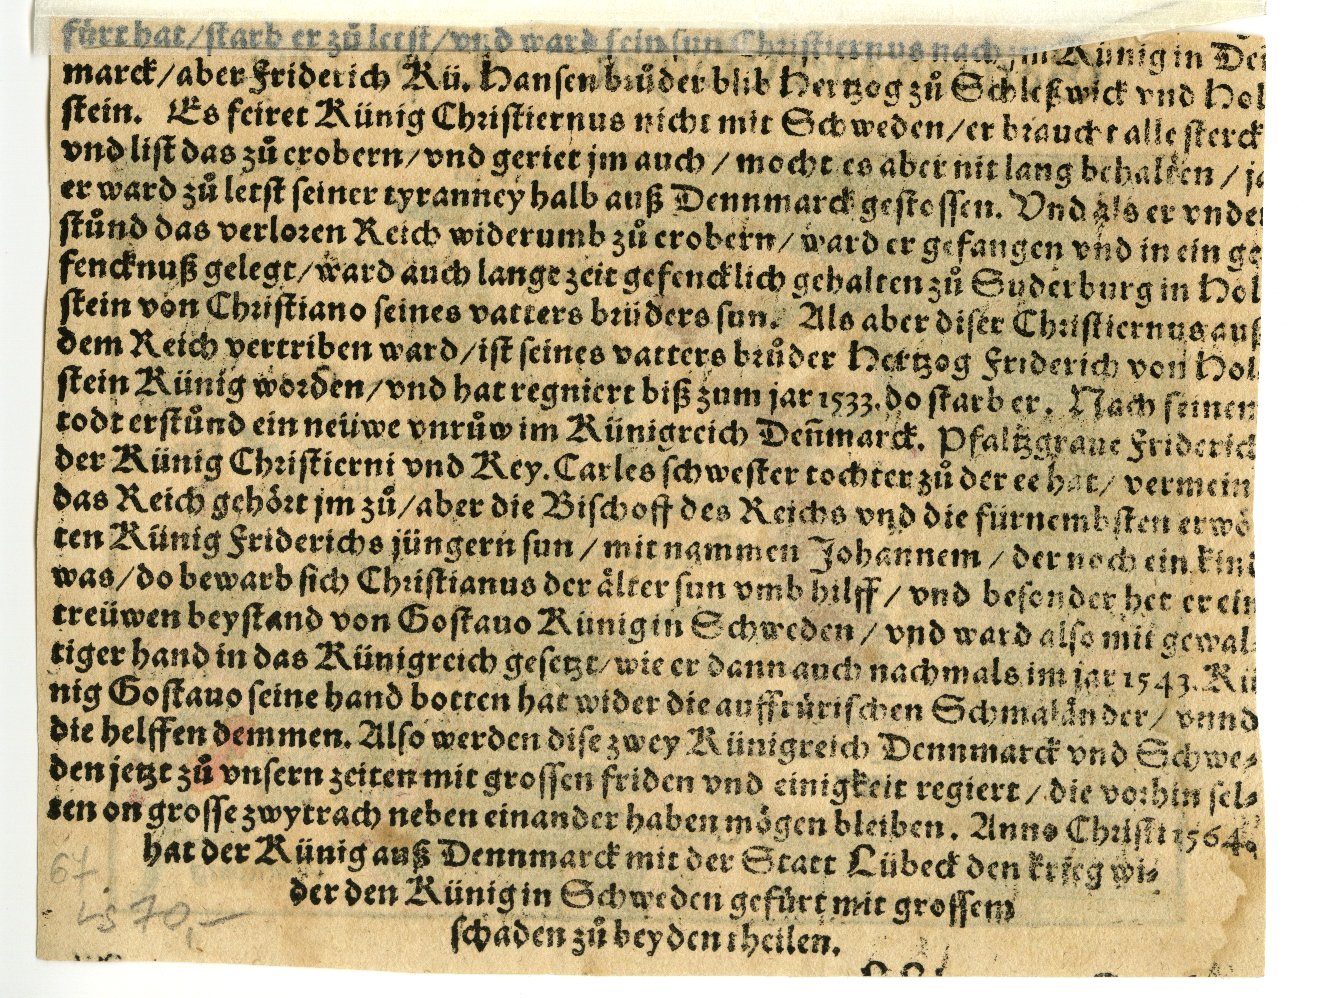 fürt hat / starb er zů letst / vnd ward sein sun Christiernus nach jm Künig in Deñ
marck / aber Friderich Kü. Hansen brůder blib Hertzog zů Schleßwick vnd Hol
stein. Es feiret Künig Christiernus nicht mit Schweden / er braucht alle sterck
vnd list das zů erobern / vnd geriet jm auch / mocht es aber nit lang behalten / ja
er ward zů letst seiner tyranney halb auß Dennmarck gestossen. Vnd als er vnder
stůnd das verloren Reich widerumb zů erobern / ward er gefangen vnd in ein ge
fencknuß gelegt / ward auch lange zeit gefencklich gehalten zů Suderburg in Hol
stein von Christiano seines vatters brüders sun. Als aber diser Christiernus auß
dem Reich vertriben ward / ist seines vatters brůder Hertzog Friderich von Hol-
stein Künig worden / vnd hat regniert biß zum jar 1533. do starb er. Nach seinem
todt erstůnd ein neüwe vnrůw im Künigreich Deñmarck. Pfaltzgraue Friderich
der Künig Christierni vnd Key. Carles schwester tochter zů der ee hat / vermeint
das Reich gehört jm zů / aber die Bischoff des Reichs vnd die fürnembsten erwö
ten Künig Friderichs jüngern sun / mit nammen Johannem / der noch ein kind
was / do bewarb sich Christianus der ålter sun vmb hilff / vnd besonder het er ein
treüwen beystand von Gostauo Künig in Schweden / vnd ward also mit gewal-
tiger hand in das Künigreich gesetzt / wie er dann auch nachmals im jar 1543. Kü
nig Gostauo seine hand botten hat wider die auffrürischen Schmaländer / vnnd
die helffen demmen. Also werden dise zwey Künigreich Dennmarck vnd Schwe-
den jetzt zů vnsern zeiten mit grossen friden vnd einigkeit regiert / die vorhin sel-
ten on grosse zwytrach neben einander haben mögen bleiben. Anno Christi 1564.
hat der Künig auß Dennmarck mit der Statt Lübeck den krieg wi-
der den Künig in Schweden gefürt mit grossem
schaden zů beyden theilen.
67
70,-